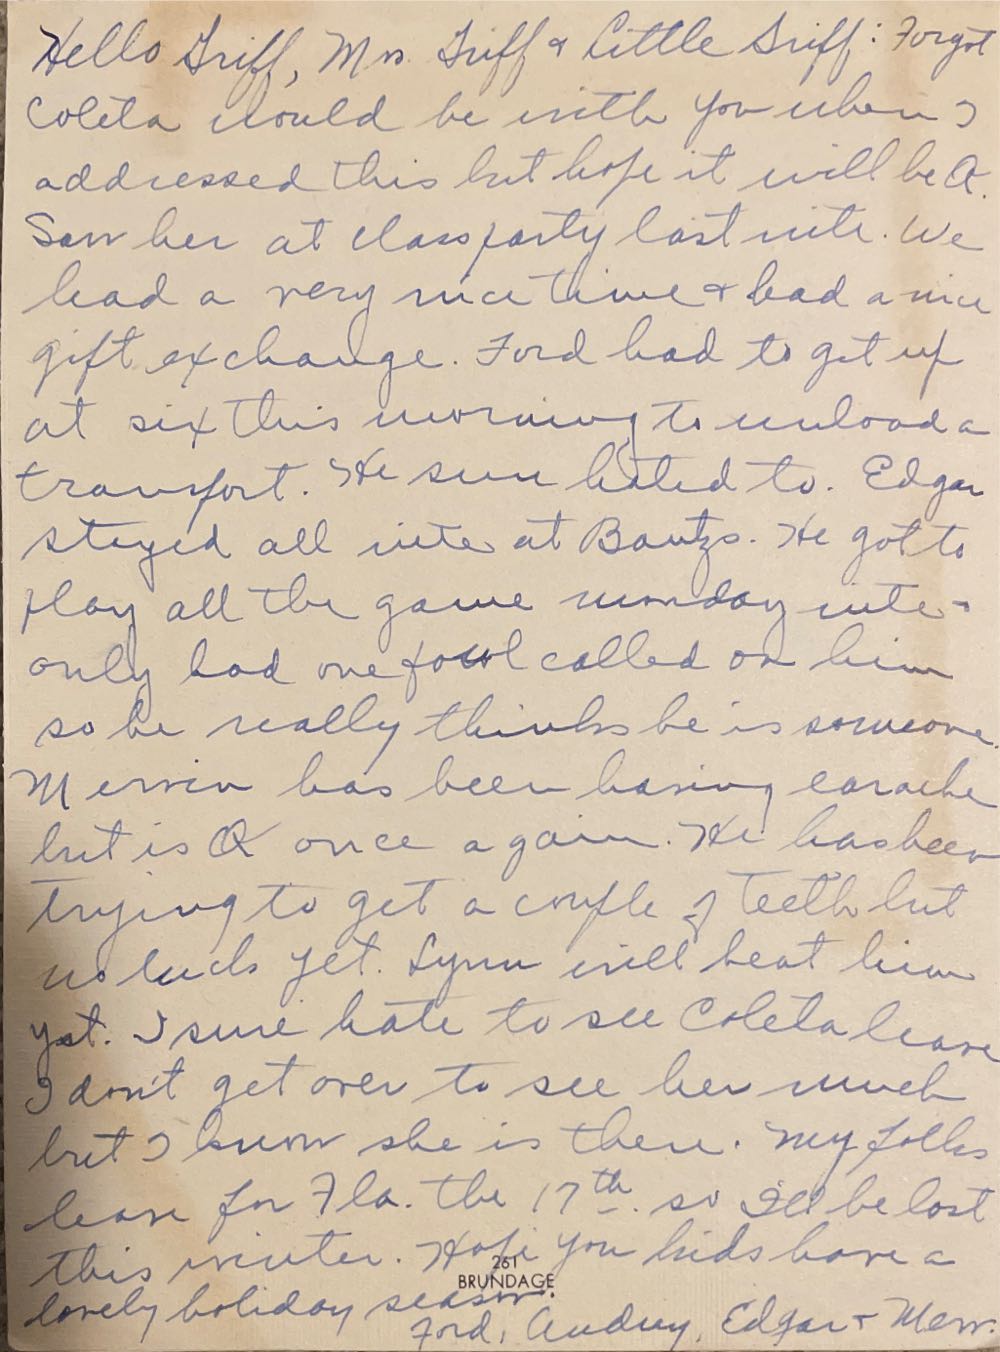 Hello Griff, Mrs. Griff & Little Griff: Forgot
Coleta would be with you when I
addressed this but hope it will be O.
Saw her at class party last nite. We
had a very nice time & had a nice
gift exchange. Ford had to get up
at six this morning to unload a
transport. He sure hated to. Edgar
stayed all nite at Bantzs. He got to
play all the game monday nite -
only had one foul called on him
so he really thinks he is someone.
Mervin has been having earache
but is OK once again. He has been
trying to get a couple of teeth but
no luck yet. Lynn will beat him
yet. I sure hate to see Coleta leave
I don't get over to see her much
but I know she is there. My folks
leave for Fla. the 17th. so I'll be lost
this winter. Hope you kids have a
261
BRUNDAGE
lovely holiday season.
Ford, Audrey, Edgar & Merv.